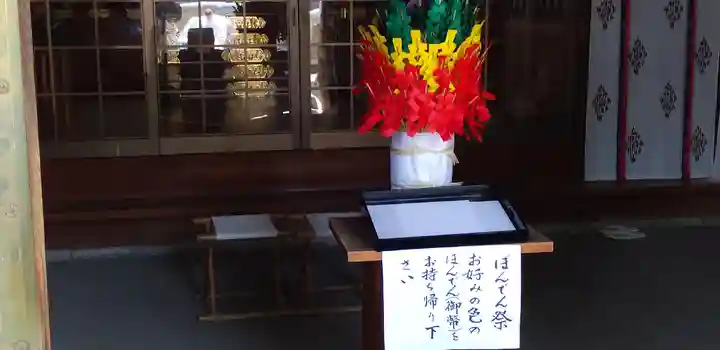 ぼんでん祭
お好みの色の
ぼんでん(御幣)を
お持ち帰り下
さい